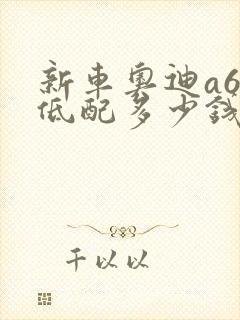 新車奧迪a6
低配多少錢
千以以